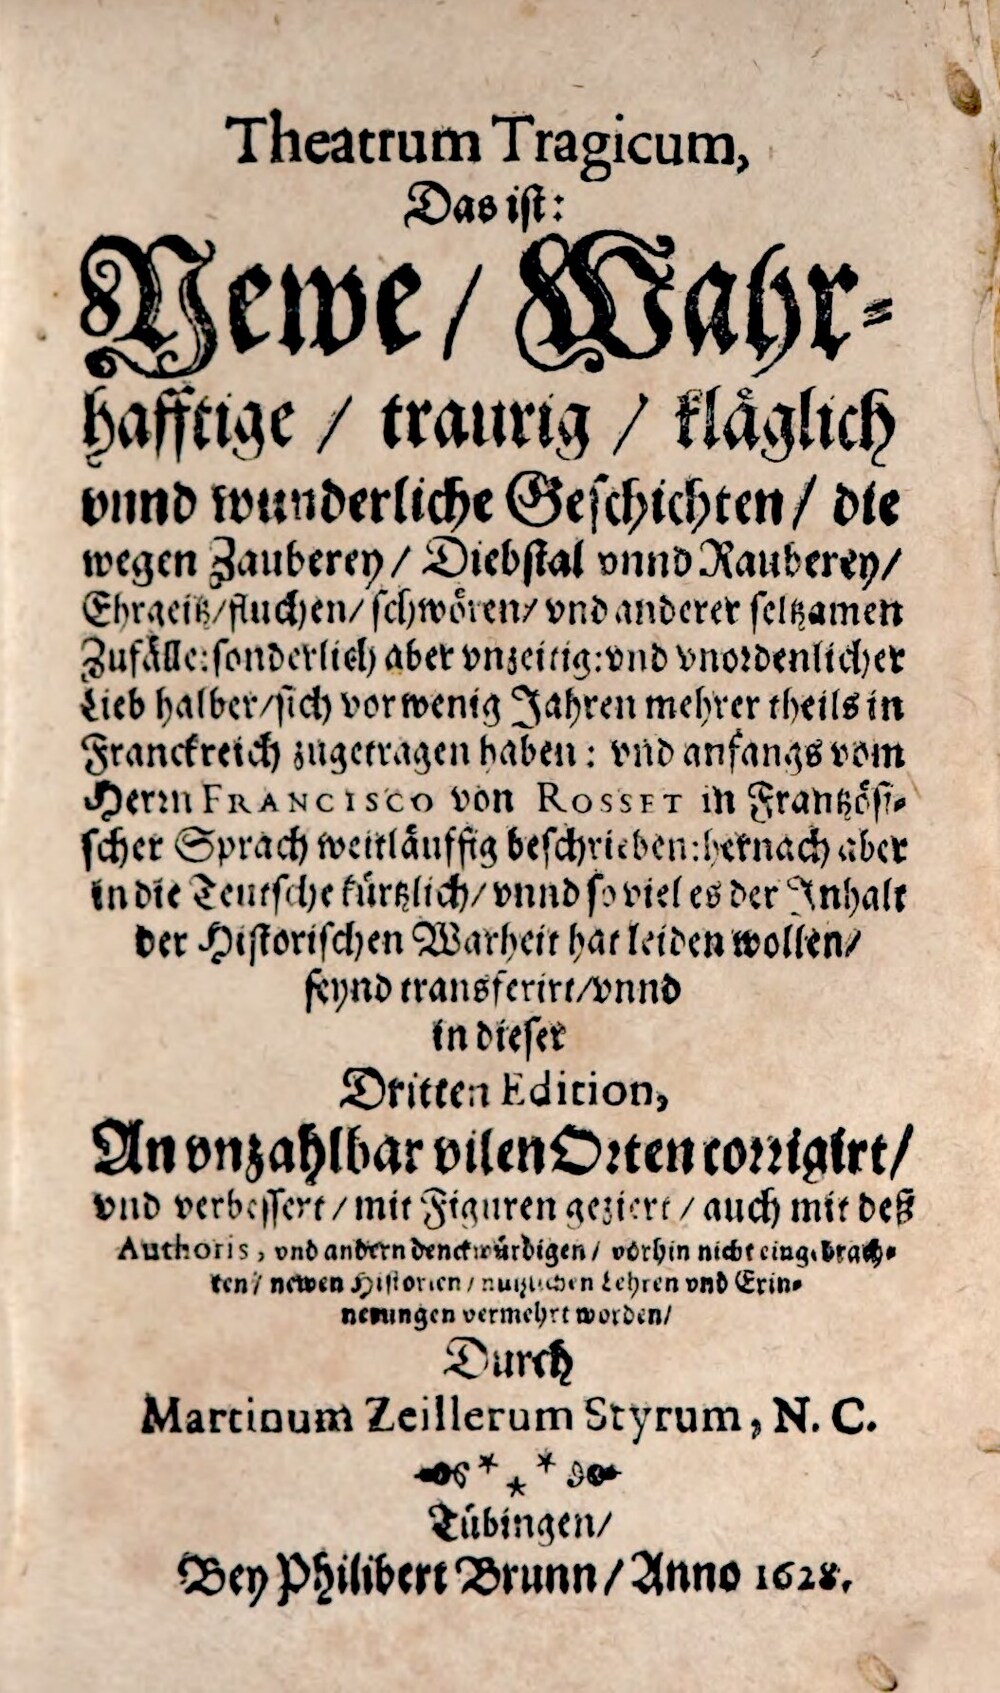 Theatrum Tragicum,
Das ist:
Newe / Wahr⸗
hafftige / traurig / klaͤglich
vnnd wunderliche Geschichten / die
wegen Zauberey / Diebstal vnnd Rauberey /
Ehrgeitz / fluchen / schwoͤren / vnd anderer seltzamen
Zufaͤlle: sonderlich aber vnzeitig: vnd vnordenlicher
Lieb halber / sich vor wenig Jahren mehrer theils in
Franckreich zugetragen haben: vnd anfangs vom
Herrn FRANCISCO von ROSSET in Frantzoͤsi⸗
scher Sprach weitlaͤuffig beschrieben: hernach aber
in die Teutsche kuͤrtzlich / vnnd so viel es der Inhalt
der Historischen Warheit hat leiden wollen /
seynd transferirt / vnnd
in dieser
Dritten Edition,
An vnzahlbar vilen Orten corrigirt /
vnd verbessert / mit Figuren geziert / auch mit deß
Authoris, vnd andern denckwuͤrdigen / vorhin nicht eingebrach⸗
ten / newen Historien / nutzlichen Lehren vnd Erin⸗
nerungen vermehrt worden /
Durch
Martinum Zeillerum Styrum, N. C.
Tuͤbingen /
Bey Philibert Brunn / Anno 1628.